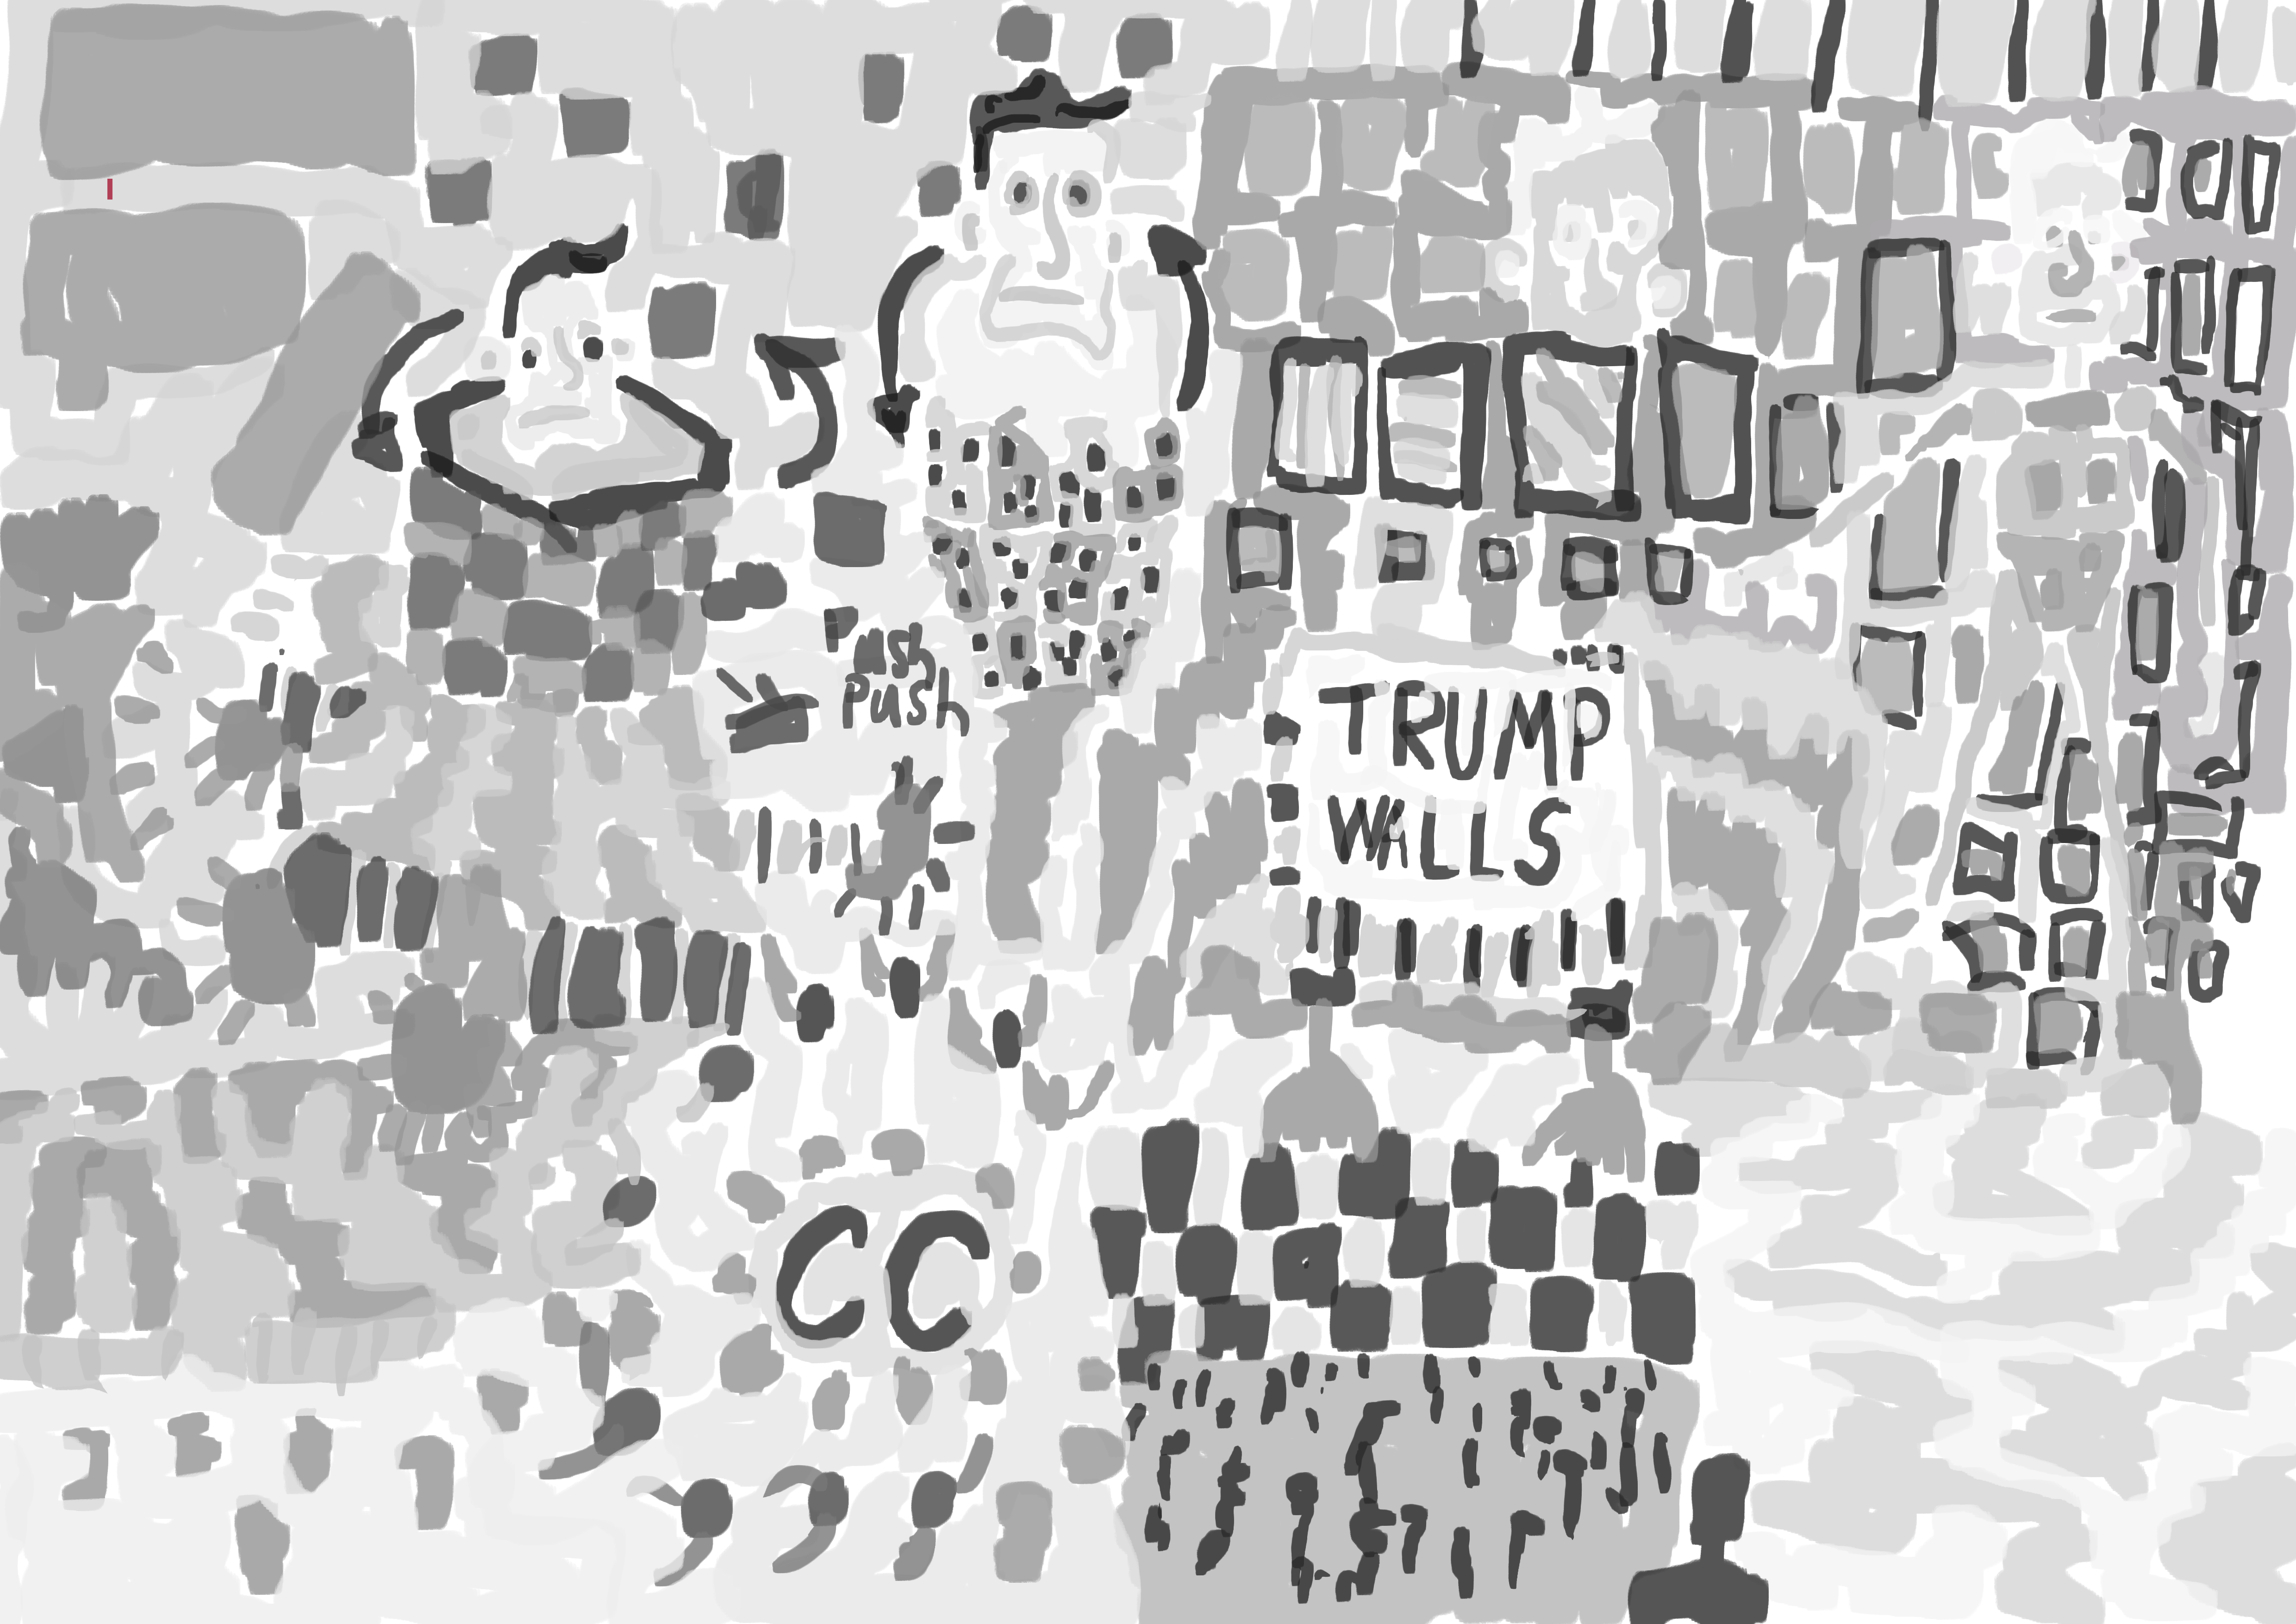 Push
TRUMP
WALLS
CC